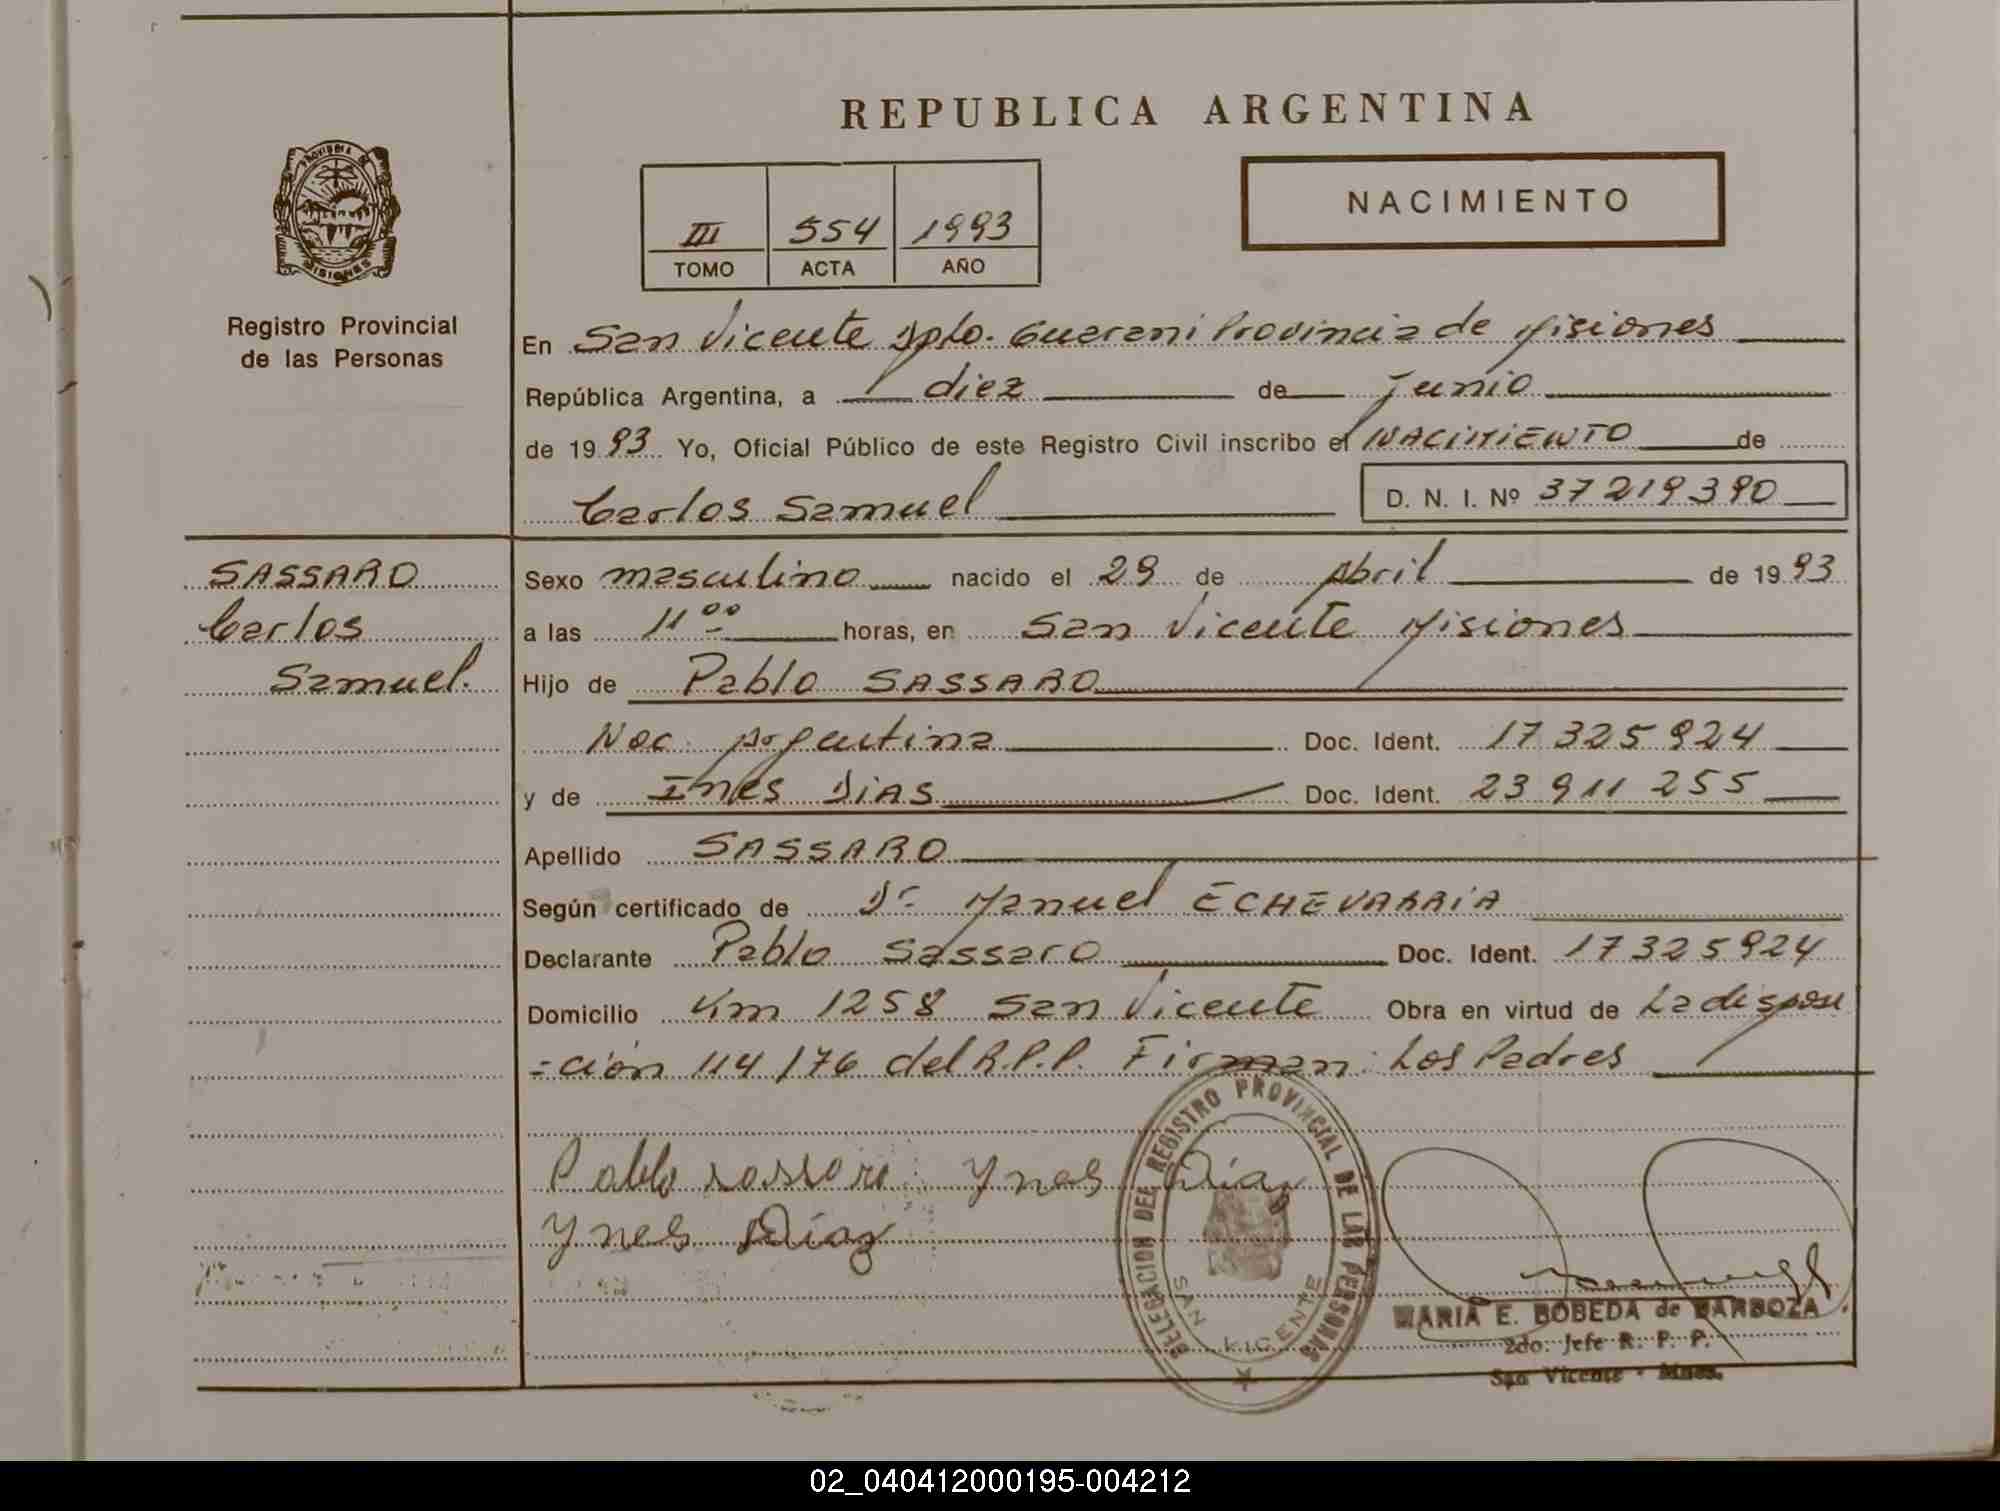 REPUBLICA ARGENTINA
PROVINCIA DE MISIONES
Registro Provincial
de las Personas
III 554 1993
TOMO ACTA AÑO
NACIMIENTO
En San Vicente Dpto. Guarani Provincia de Misiones
República Argentina, a diez de junio
de 1993 Yo, Oficial Público de este Registro Civil inscribo el NACIMIENTO de
Carlos Samuel D. N. I. Nº 37219390
SASSARO
Carlos
Samuel.
Sexo masculino nacido el 29 de Abril de 1993
a las 11 00 horas, en San Vicente Misiones
Hijo de Pablo SASSARO
Nac. Argentina Doc. Ident. 17325924
y de Ines DIAS Doc. Ident. 23 911 255
Apellido SASSARO
Según certificado de Dr. Manuel ECHEVARRIA
Declarante Pablo Sassaro Doc. Ident. 17325924
Domicilio Km 1258 San Vicente Obra en virtud de La disposi
-ción 114/76 del R.P.P. Firman: Los Padres
Pablo sassaro Ynes Díaz
Ynes Díaz
DELEGACION DEL REGISTRO PROVINCIAL DE LAS PERSONAS
SAN VICENTE
MARIA E. BOBEDA de BARBOZA
2do. Jefe R. P. P.
San Vicente - Mnes.
02_040412000195-004212